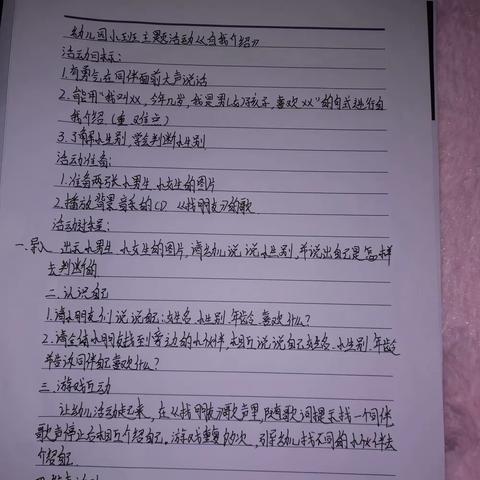 幼儿园小班主题活动《自我介绍》
活动目标:
1.有勇气在同伴面前大声说话
2.能用"我叫XX,今年几岁,我是男(女)孩子,喜欢XX"的句式进行自
我介绍(重 难点)
3.了解性别,学会判断性别
活动准备:
1.准备两张小男生 小女生的图片
2.播放背景音乐的CD 《找朋友》的歌
活动过程:
一.导入 出示小男生 小女生的图片,请幼儿说说性别,并说出自己是怎样
去判断的
二.认识自己
1.请小朋友们说说自己:姓名.性别.年龄.喜欢什么?
2.请全体小朋友找到旁边的小伙伴,相互说说自己姓名.性别.年龄
并告诉同伴自己喜欢什么?
三.游戏互动
让幼儿活动起来,在《找朋友》歌声里,随歌词提示找一个同伴
歌声停止后相互介绍自己。游戏重复多次,引导幼儿找不同的小伙伴去
介绍自己